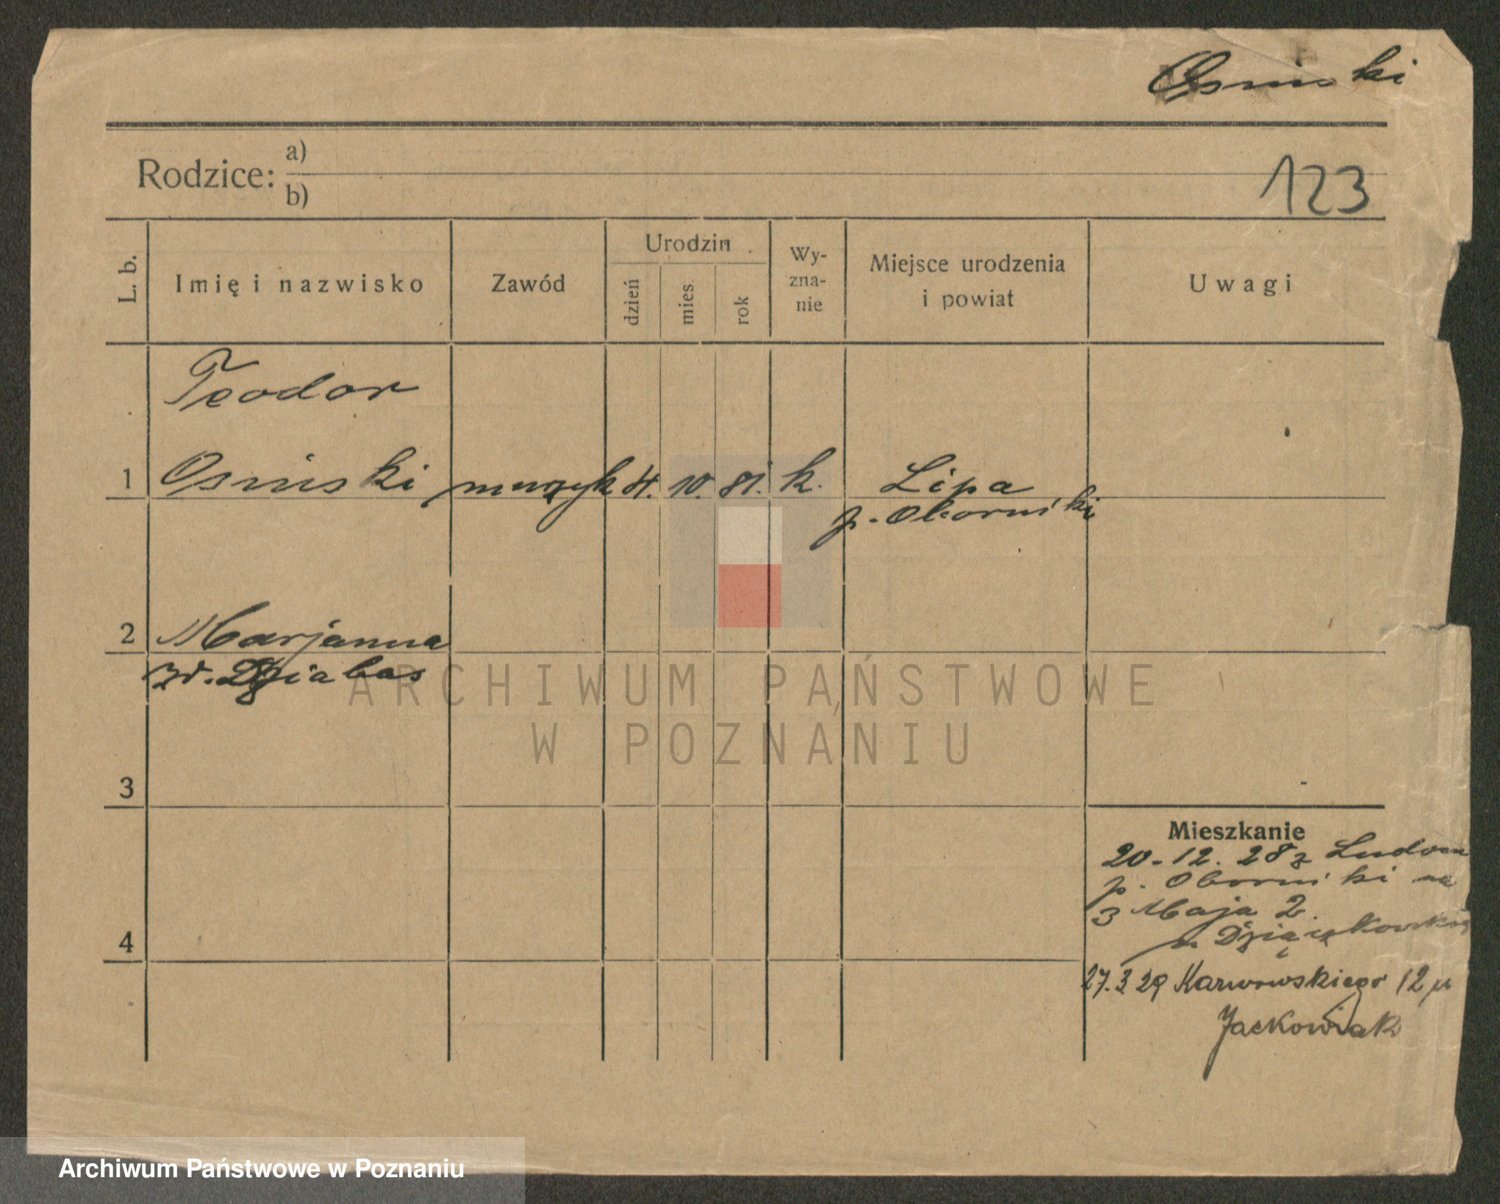 Osinski
Rodzice: a)
b)
123
L. b.
Imię i nazwisko
Zawód
Urodzin
dzień
mies
rok
Wy-
zna-
nie
Miejsce urodzenia
i powiat
Uwagi
Teodor
1 Osinski muzyk 4. 10. 81. k. Lipa
p. Oborniki
2 Marjanna
zd. Dziabas
3
4
Mieszkanie
20.12.28 z Ludom
p. Oborniki na
3 Maja 2
u
27.3 29 Karwowskiego 12 u
Jackowiak
ARCHIWUM PAŃSTWOWE
W POZNANIU
Archiwum Państwowe w Poznaniu